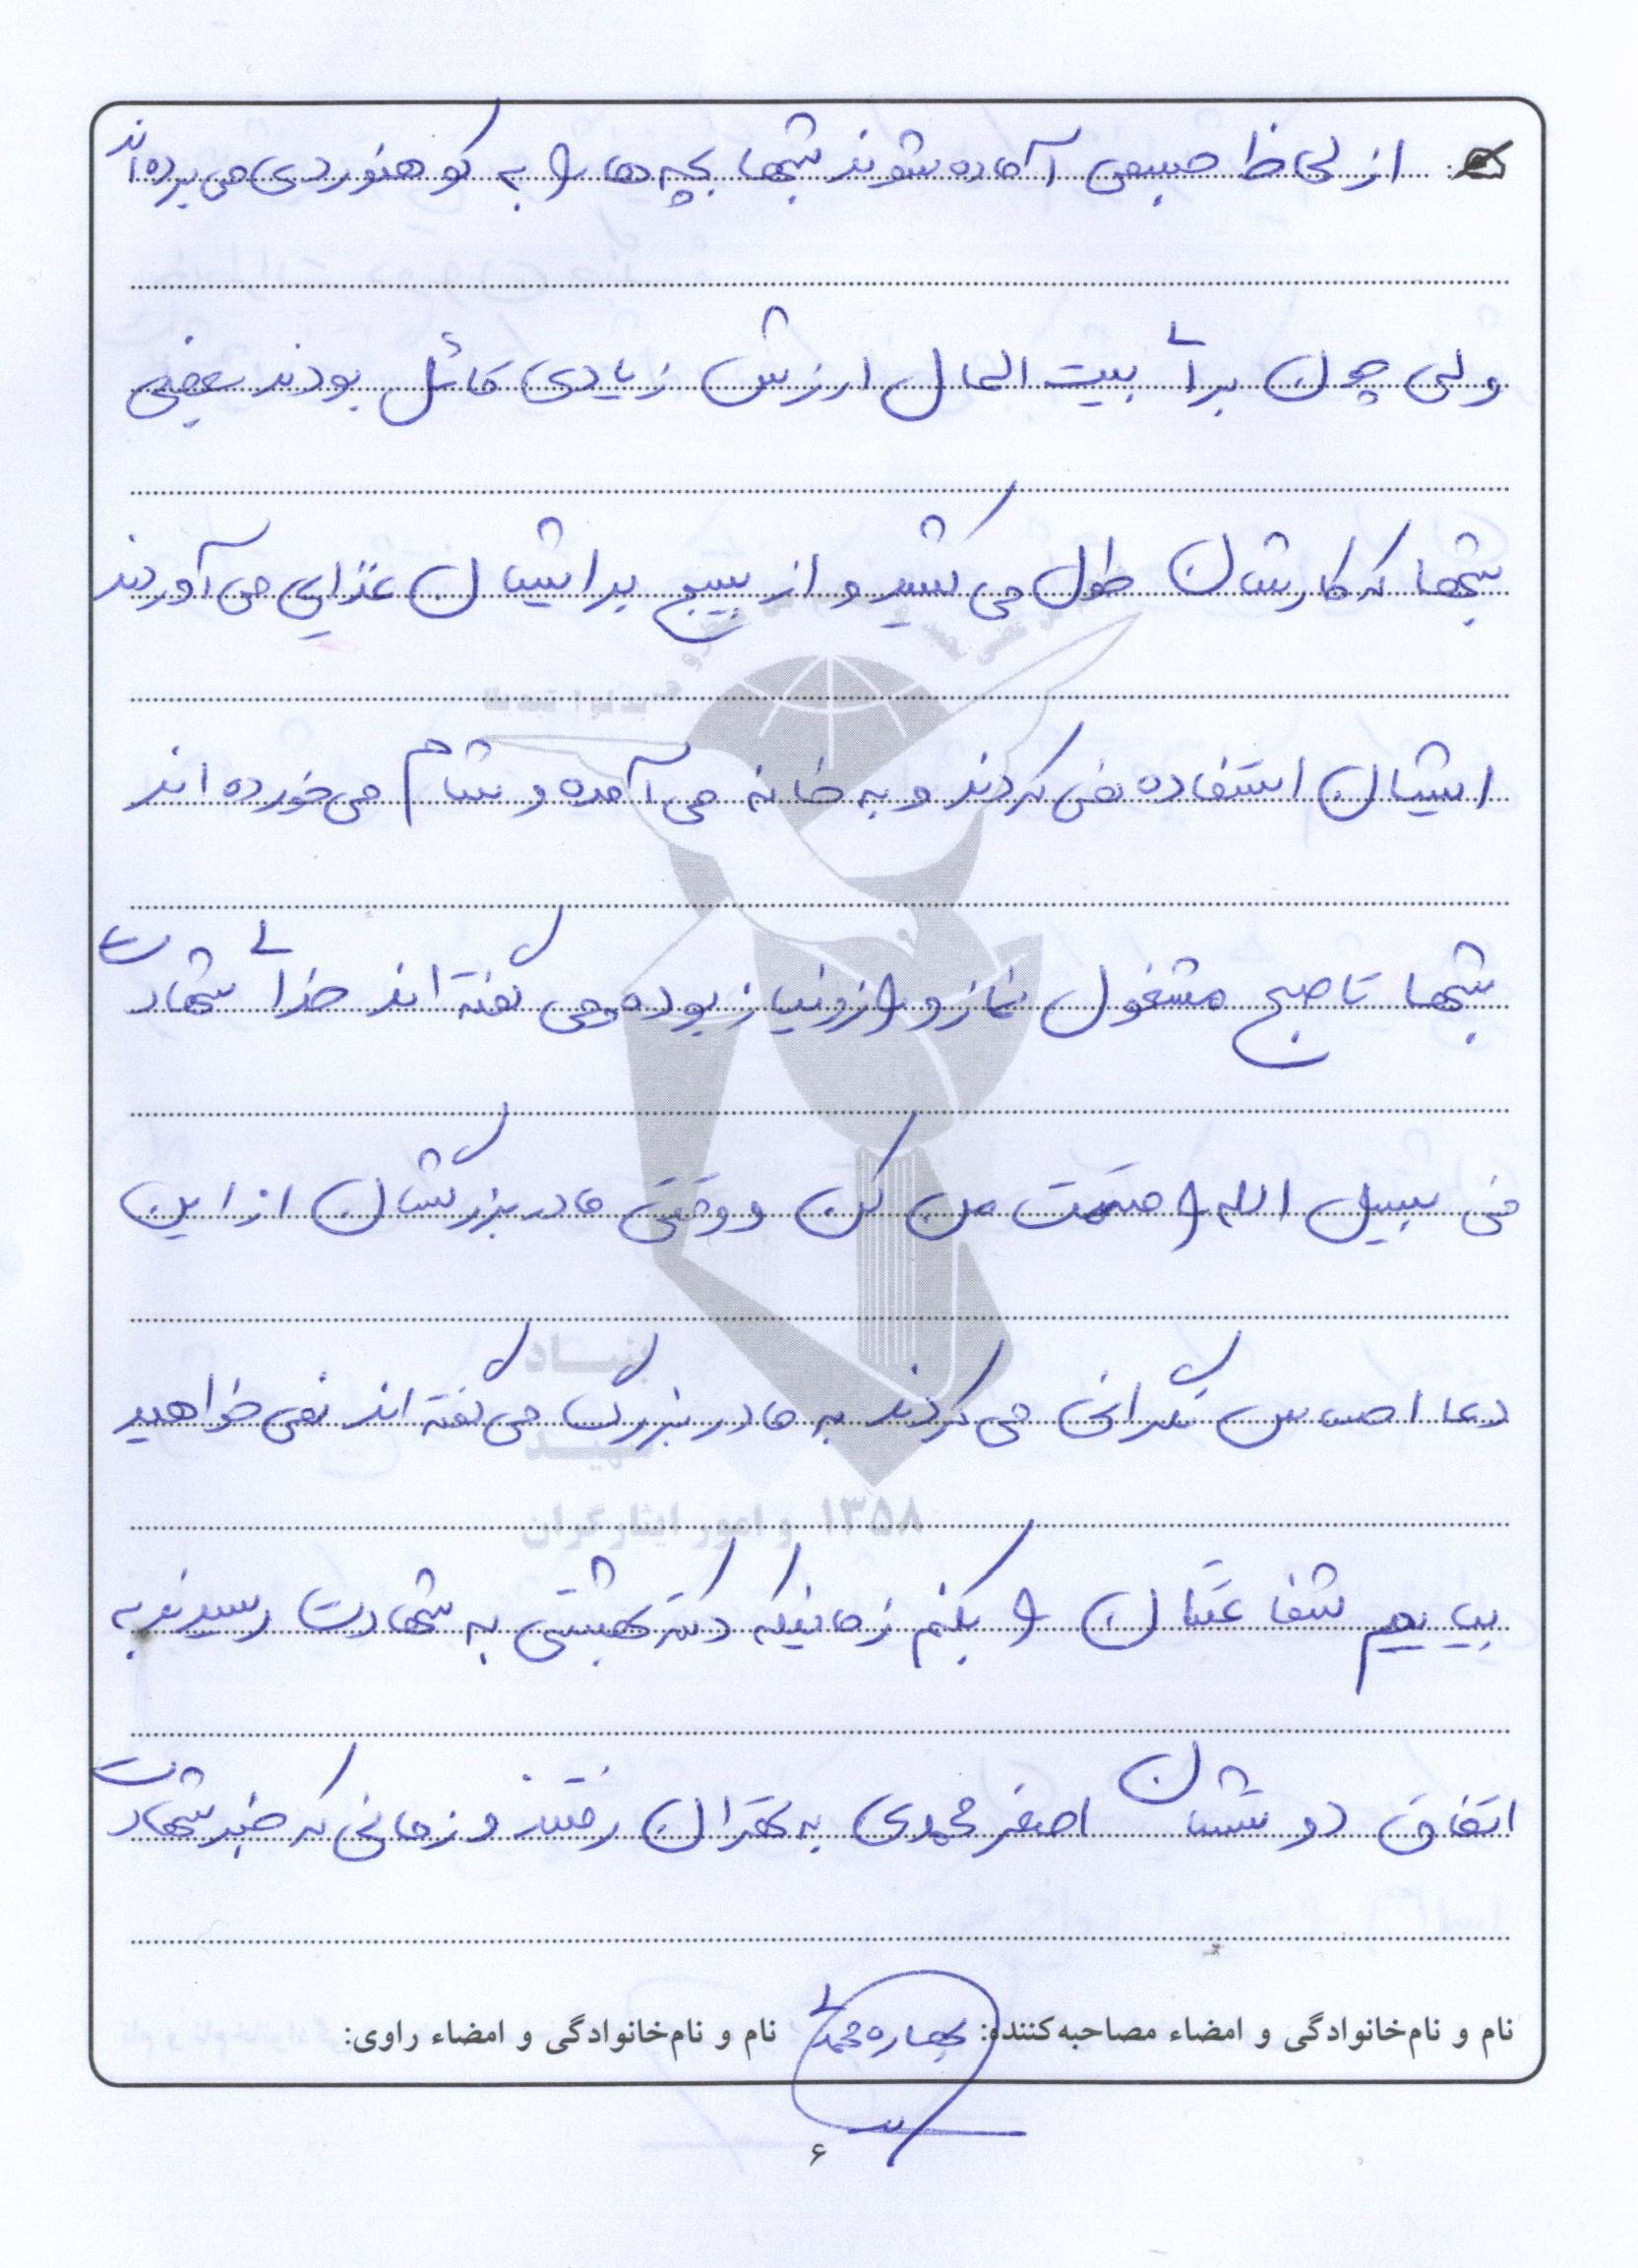 از لحاظ جسمی آماده شوند شبها بچه ها را به کوهنوردی می برده اند
ولی چون برای بیت المال ارزش زیادی قائل بودند بعضی
شبها که کارشان طول می کشید و از بسیج برایشان غذایی می آوردند
ایشان استفاده نمی کردند و به خانه می آمده و شام می خورده اند
شبها تا صبح مشغول نماز و راز و نیاز بوده و می گفته اند خدای شهادت
فی سبیل الله را قسمت من کن و وقتی مادربزرگشان از این
دعا احساس نگرانی می کردند به مادربزرگ می گفته اند نمی خواهید
بیایم شفاعتتان را بکنم زمانیکه دکتر بهشتی به شهادت رسیدند به
اتفاق دوستشان اصغر محمدی به تهران رفتند و زمانی که خبر شهادت
نام و نام‌خانوادگی و امضاء مصاحبه‌کننده: بهاره محمدی نام و نام‌خانوادگی و امضاء راوی:
۶
بنیاد
شهید
۱۳۵۸ و امور ایثارگران